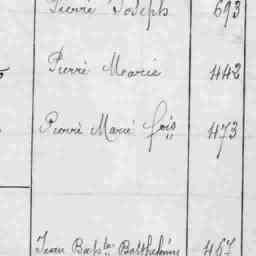 Pierre Joseph 693
Pierre Marie 442
Pierre Marie fois 473
Jean Bapte Barthelémy 467